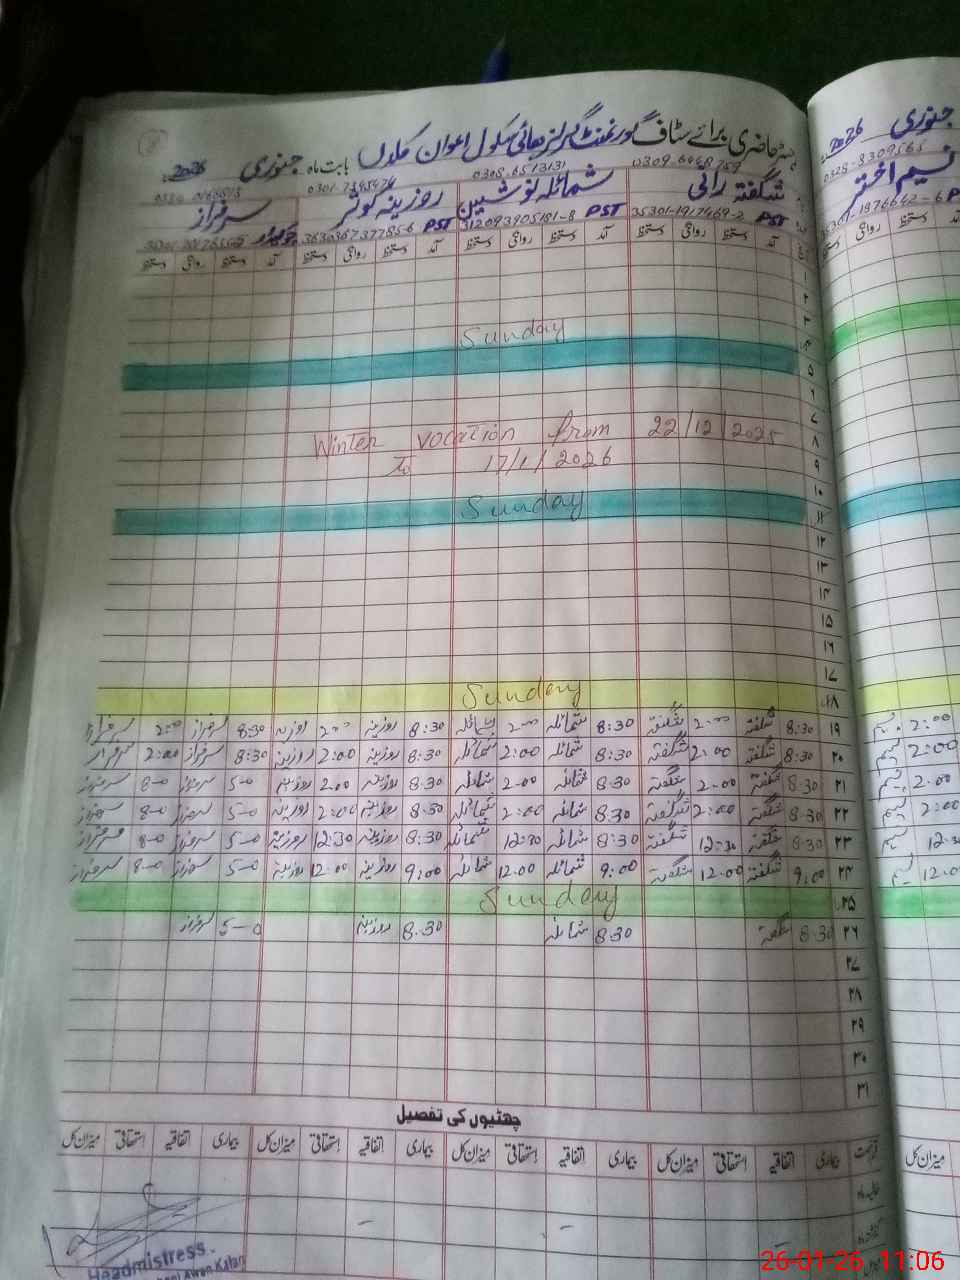 رجسٹر حاضری برائے سٹاف گورنمنٹ گرلز ھائی سکول اعوان کلاں بابت ماہ جنوری 2026ء
جنوری 2026ء
0309-6448759 0308-6513131 0301-7395474
شگفتہ رانی شمائلہ نوشین روزینہ کوثر سرفراز
0328-8309565
نسیم اختر
35301-1917469-2 PST 312093905181-8 PST 3630367377856 PST چوکیدار
PST
آمد دستخط روانگی دستخط آمد دستخط روانگی دستخط آمد دستخط روانگی دستخط آمد دستخط روانگی دستخط
۱
۲
۳
۴ Sunday
۵
۶
۷
۸ Winter vocation from 22/12/2025
۹ To 17/1/2026
۱۰
۱۱ Sunday
۱۲
۱۳
۱۴
۱۵
۱۶
۱۷
۱۸ Sunday
۱۹ 8:30 شگفتہ 2:00 شگفتہ 8:30 شمائلہ 2:00 شمائلہ 8:30 روزینہ 2:00 روزینہ 8:30 سرفراز 2:00 سرفراز
۲۰ 8:30 شگفتہ 2:00 شگفتہ 8:30 شمائلہ 2:00 شمائلہ 8:30 روزینہ 2:00 روزینہ 8:30 سرفراز 2:00 سرفراز
۲۱ 8:30 شگفتہ 2:00 شگفتہ 8:30 شمائلہ 2:00 شمائلہ 8:30 روزینہ 2:00 روزینہ 5-0 سرفراز 8-0 سرفراز
۲۲ 8:30 شگفتہ 2:00 شگفتہ 8:30 شمائلہ 2:00 شمائلہ 8:30 روزینہ 2:00 روزینہ 5-0 سرفراز 8-0 سرفراز
۲۳ 8:30 شگفتہ 12:30 شگفتہ 8:30 شمائلہ 12:30 شمائلہ 8:30 روزینہ 12:30 روزینہ 5-0 سرفراز 8-0 سرفراز
۲۴ 9:00 شگفتہ 12:00 شگفتہ 9:00 شمائلہ 12:00 شمائلہ 9:00 روزینہ 12:00 روزینہ 5-0 سرفراز 8-0 سرفراز
۲۵ Sunday
۲۶ 8:30 شگفتہ 8:30 شمائلہ 8:30 روزینہ 5-0 سرفراز
۲۷
۲۸
۲۹
۳۰
۳۱
2:00 نسیم
2:00 نسیم
2:00 نسیم
2:00 نسیم
12:30 نسیم
12:00 نسیم
چھٹیوں کی تفصیل
بیماری اتفاقیہ استحقاقی میزان کل بیماری اتفاقیہ استحقاقی میزان کل بیماری اتفاقیہ استحقاقی میزان کل بیماری اتفاقیہ استحقاقی میزان کل
میزان کل
حالیہ ماہ
Headmistress
Awan Kalan
26-01-26 11:06